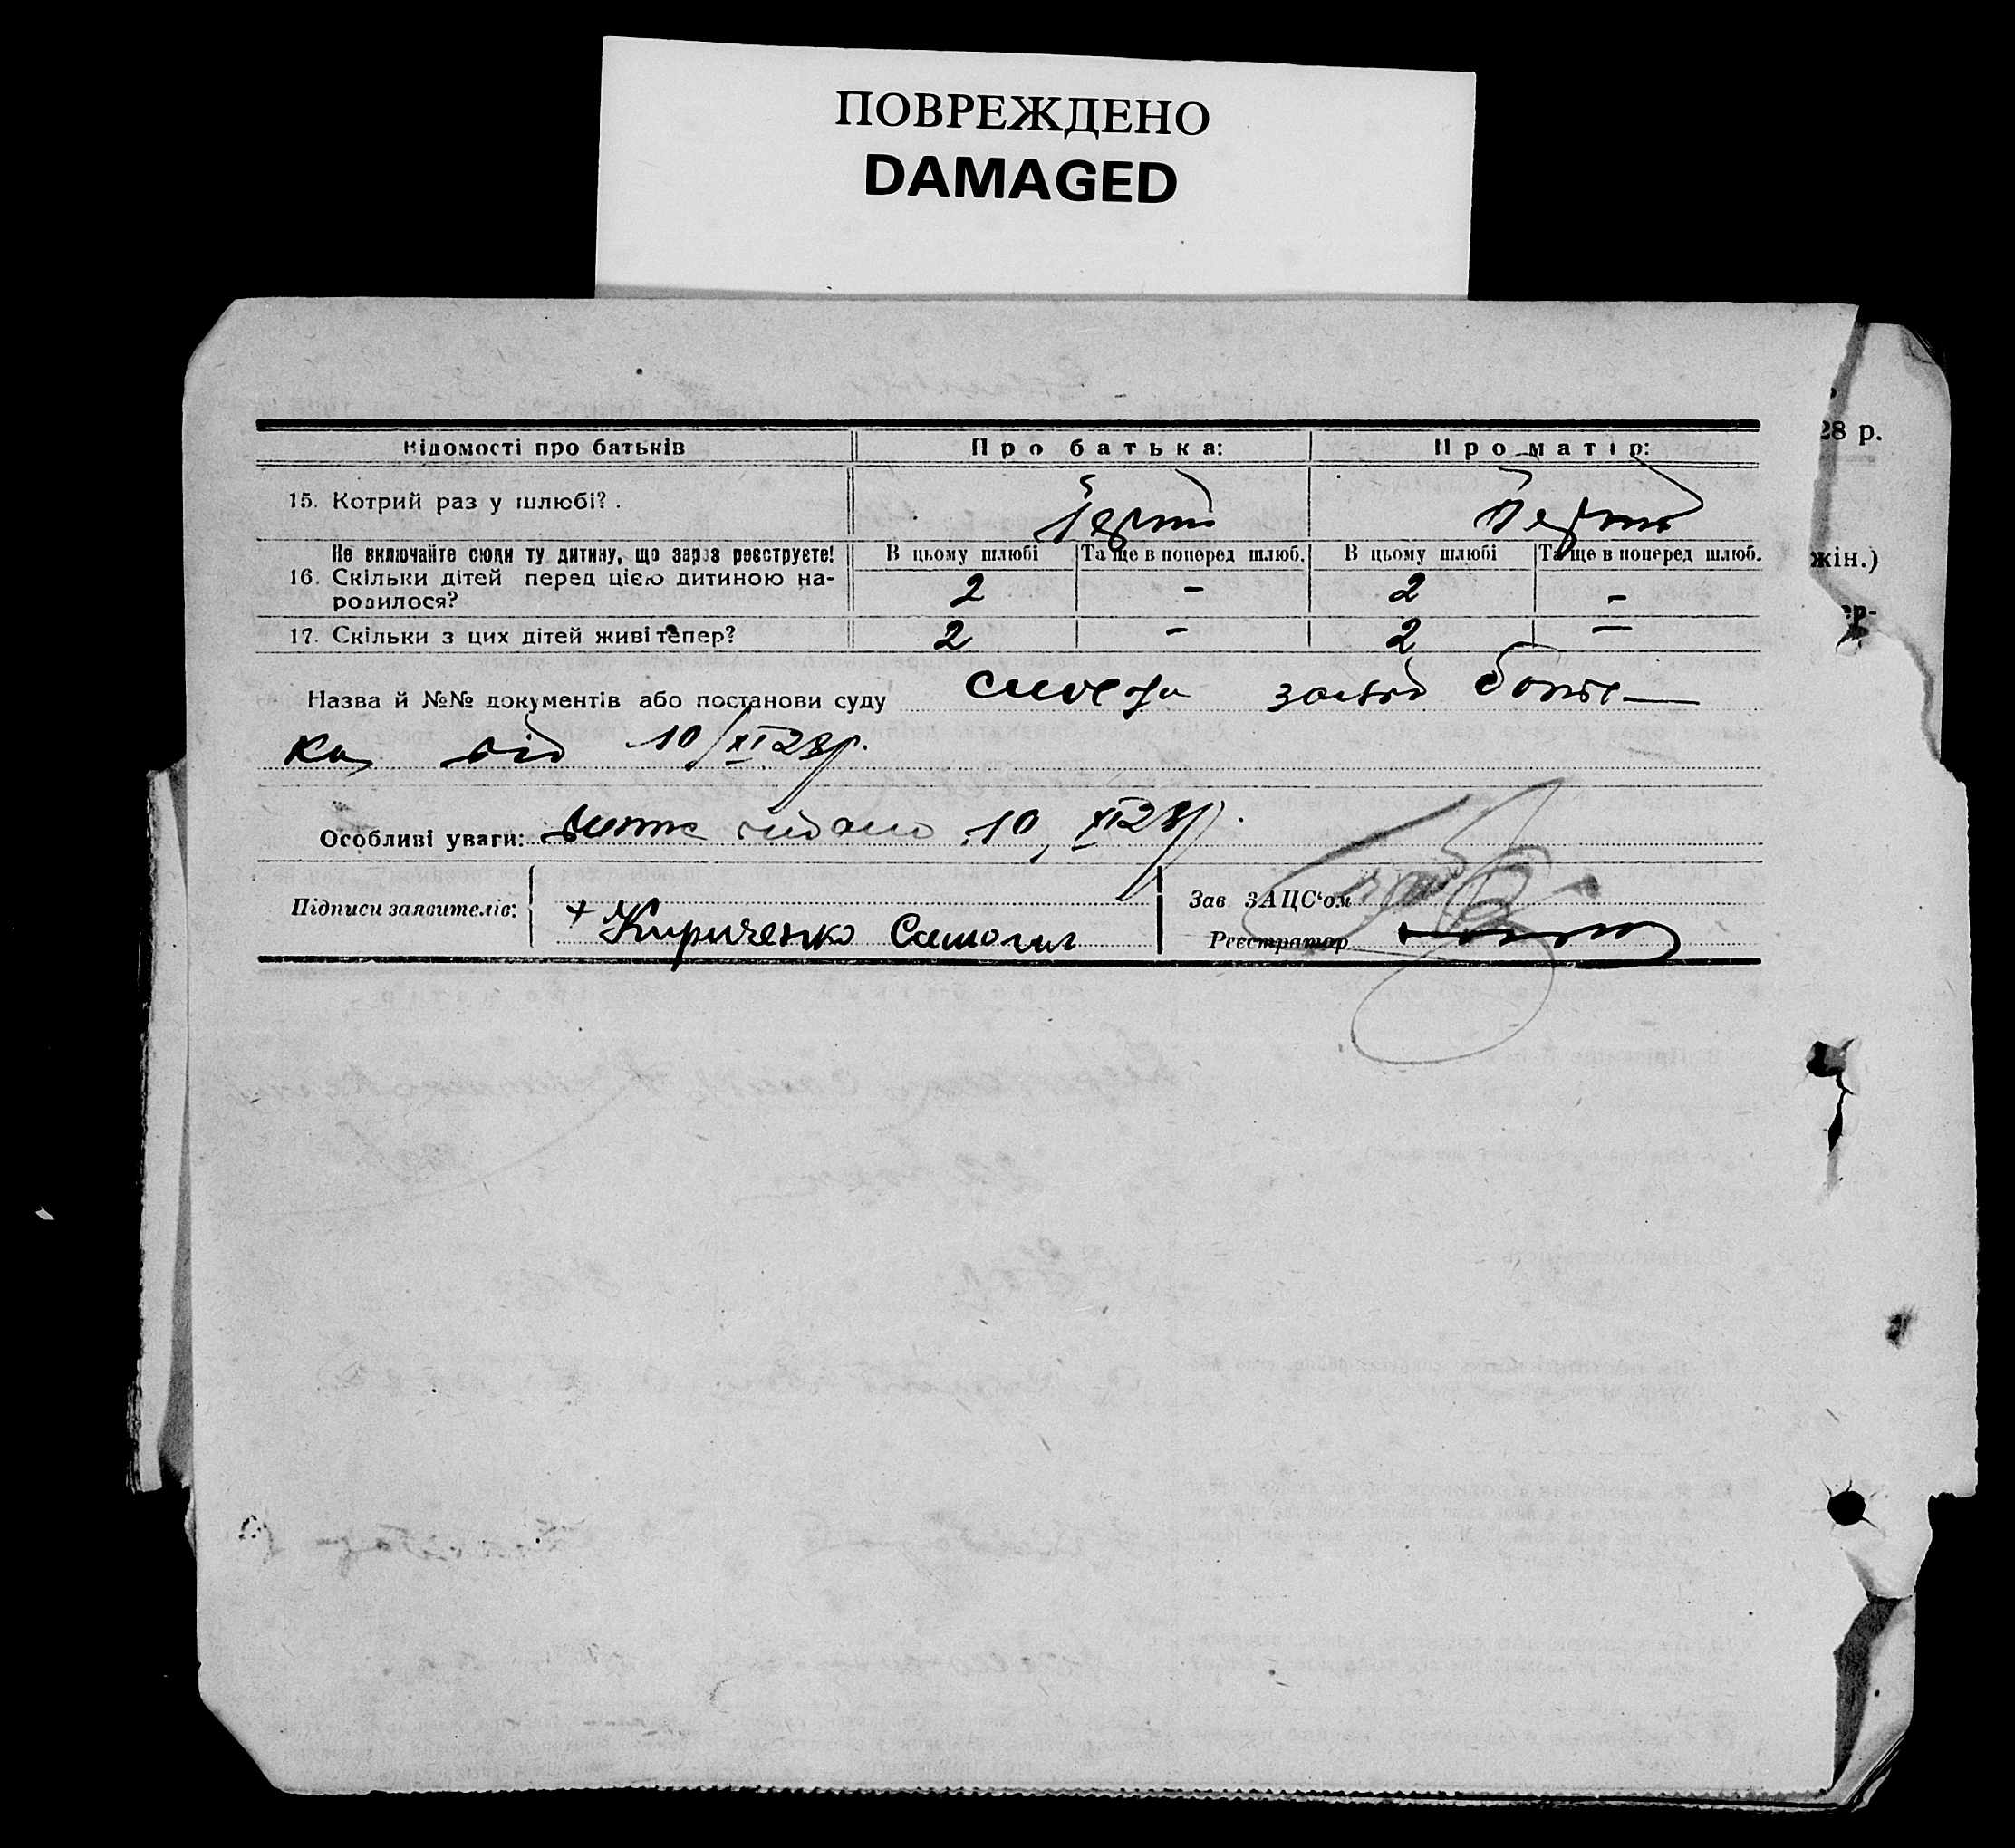 ПОВРЕЖДЕНО
DAMAGED
28 р.
Відомості про батьків Про батька: Про матір:
15. Котрий раз у шлюбі? . Перший Перший
Не включайте сюди ту дитину, що зараз реєструєте! В цьому шлюбі Та ще в поперед шлюб. В цьому шлюбі Та ще в поперед шлюб.
жін.)
16. Скільки дітей перед цією дитиною на-
родилося? 2 - 2 -
ер-
17. Скільки з цих дітей живі тепер? 2 - 2 -
Назва й №№ документів або постанови суду словесна заява бать-
ка від 10/XI 28р.
Особливі уваги: видано 10, XI 28р.
Підписи заявителів: Зав ЗАЦС'ом
+ Кириченко Самоіл Реєстратор